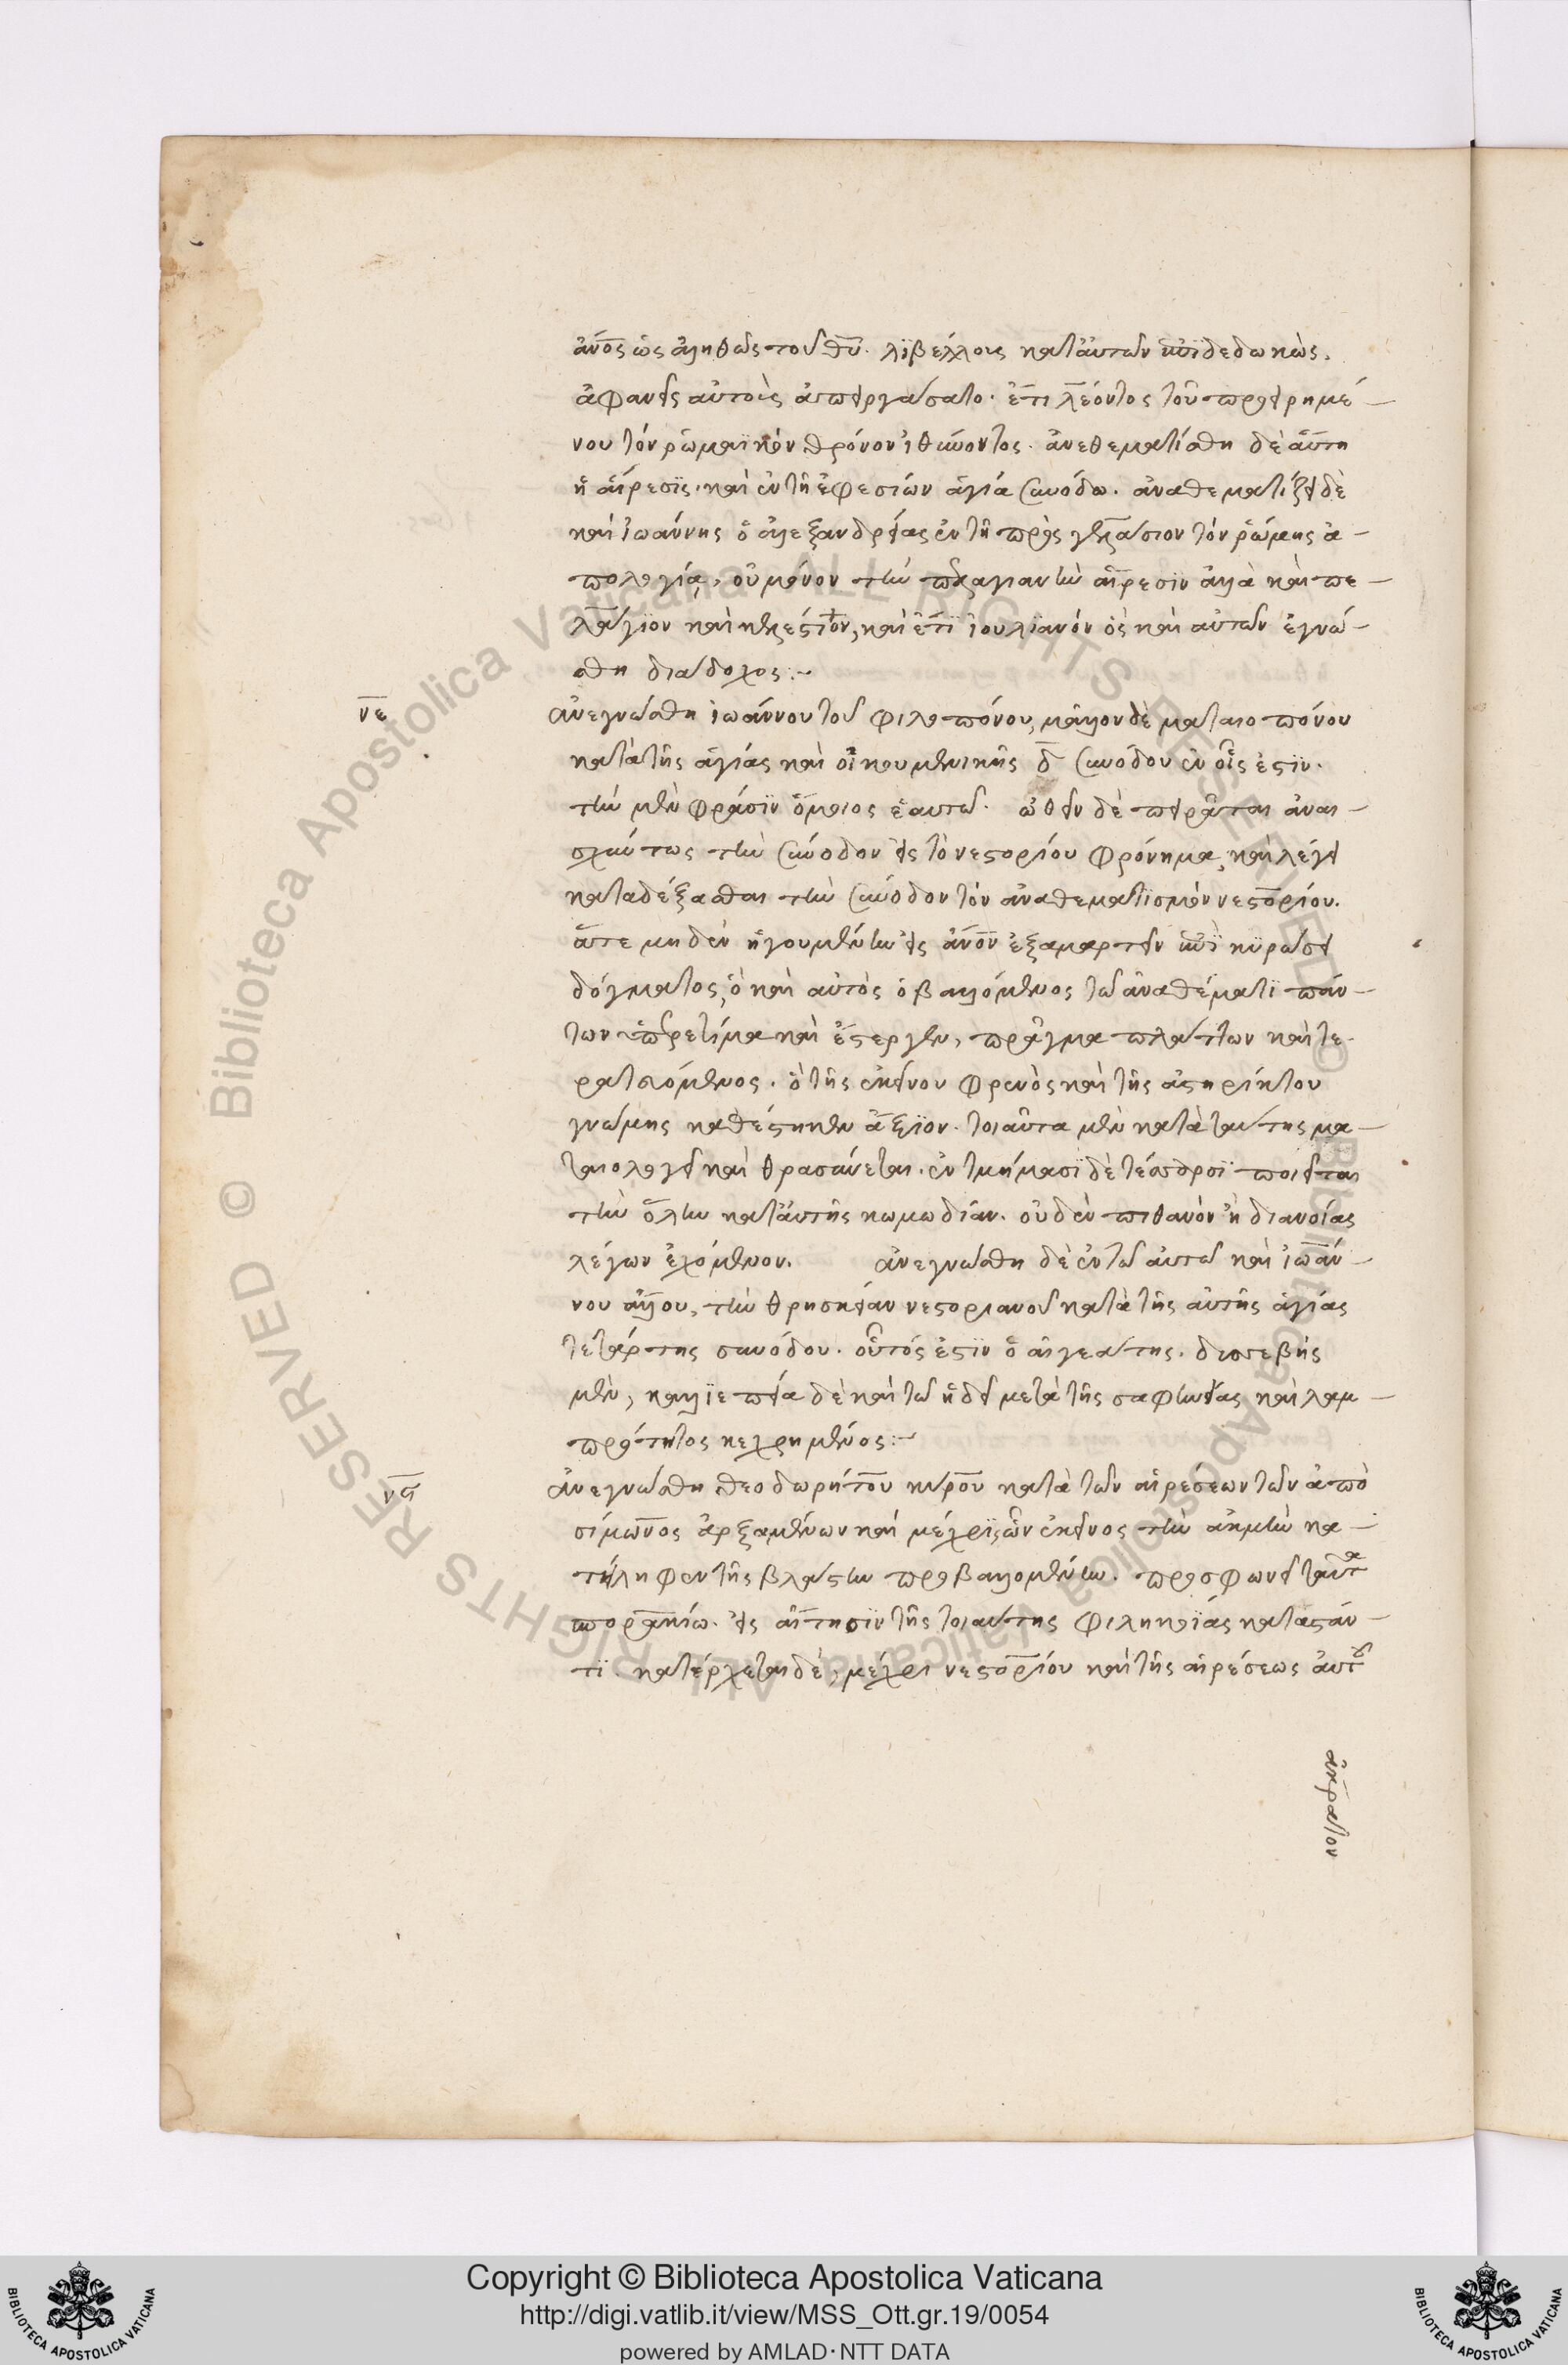 ἄν͞ος ὡς ἀληθῶς τοῦ θ͞υ. λϊβέλλους κατ' αὐτῶν ἐπϊδεδωκὼς.
ἀφανεῖς αὐτοὺς ἀπειργάσατο. ἔτι λέοντος τοῦ προειρημέ-
νου τὸν ῥωμαϊκὸν θρόνον ἰθύνοντος. ἀνεθεματίσθη δὲ αὕτη
ἡ αἵρεσϊς. καὶ ἐν τῆ ἐφεσίων ἁγία συνόδω. ἀναθεματίζει δὲ
καὶ ἰωάννης ὁ ἀλεξανδρείας ἐν τῆ πρὸς γελάσιον τὸν ῥώμης ἀ-
πολογία, οὐ μόνον τὴν πελαγιανὴν αἵρεσϊν ἀλλὰ καὶ πε-
λάγϊον καὶ κελέστιον, καὶ ἔτϊ ἰουλϊανόν ὃς καὶ αὐτῶν ἐγνώ-
σθη διάδοχος:-
ν͞ε ἀνεγνώσθη ἰωάννου τοῦ φιλοπόνου, μᾶλλον δὲ ματαιοπόνου
κατὰ τῆς ἁγίας καὶ οἰκουμενικῆς δ͞ συνόδου ἐν οἷς ἐστϊν.
τὴν μὲν φράσϊν ὅμοιος ἑαυτῶ. ὠθεῖν δὲ πειρᾶται ἀναι-
σχύντως τὴν σύνοδον εἰς τὸ νεστορίου φρόνημα, καὶ λέγει
καταδέξασθαι τὴν σύνοδον τὸν ἀναθεματϊσμὸν νεστορίου.
ἅτε μηδὲν ἡγουμένην εἰς ἄν͞ον ἐξαμαρτεῖν ἐπὶ κϋρώσει
δόγματος, ὃ καὶ αὐτὸς ὁ βαλλόμενος τῶ ἀναθέματϊ πάν-
των ὑπερετίμα καὶ ἔστεργεν, πρᾶγμα πλάττων καὶ τε-
ρατευόμενος. ὃ τῆς ἐκείνου φρενὸς καὶ τῆς ἀστηρίκτου
γνώμης καθέστηκεν ἄξϊον. τοιαῦτα μὲν κατὰ ταύτης μα-
ταιολογεῖ καὶ θρασύνεται. ἐν τμήμασϊ δὲ τέσσαρσϊ ποιεῖται
τὴν ὅλην κατ' αὐτῆς κωμωδίαν. οὐδὲν πιθανὸν ἢ διανοίας
λέγων ἐχόμενον. ἀνεγνώσθη δὲ ἐν τῶ αὐτῶ καὶ ἰωάν-
νου ἄλλου, τὴν θρησκείαν νεστοριανοῦ κατὰ τῆς αὐτῆς ἁγίας
τετάρτης συνόδου. οὗτός ἐστϊν ὁ αἰγεάτης. δυσσεβὴς
μὲν, καλλϊεπεία δὲ καὶ τῶ ἡδεῖ μετὰ τῆς σαφηνείας καὶ λαμ-
πρότητος κεχρημένος:-
ν͞ϛ ἀνεγνώσθη θεοδωρήτου κύρου κατὰ τῶν αἱρέσεων τῶν ἀπὸ
σίμωνος ἀρξαμένων καὶ μέχρϊς ὧν ἐκεῖνος τὴν ἀκμὴν κα-
τείληφεν τῆς βλάστην προβαλλομένην. προσφωνεῖ ταῦτα
πορακίω. εἰς αἴτησϊν τῆς τοιαύτης φιληκοϊας καταστάν-
τϊ. κατέρχεται δὲ, μέχρι νεστορίου καὶ τῆς αἱρέσεως αὐτοῦ
ἀκρατον